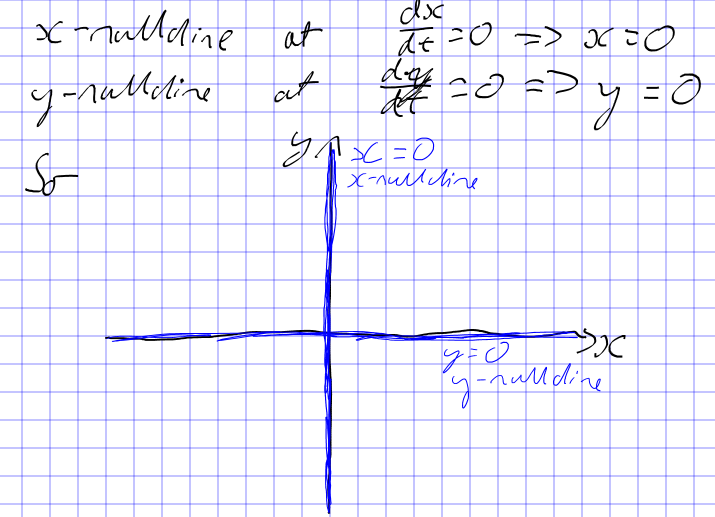 x-nullcline at dx/dt = 0 => x = 0
y-nullcline at dy/dt = 0 => y = 0
So
y
x = 0
x-nullcline
x
y = 0
y-nullcline